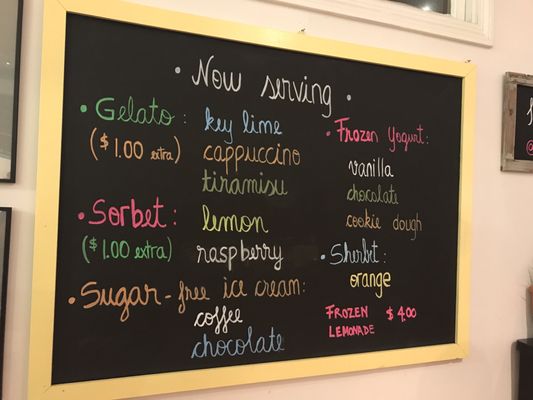 • Now serving •
• Gelato: key lime
($1.00 extra) cappuccino
tiramisu
• Sorbet: lemon
($1.00 extra) raspberry
• Sugar-free ice cream:
coffee
chocolate
• Frozen Yogurt:
vanilla
chocolate
cookie dough
• Sherbet:
orange
FROZEN $4.00
LEMONADE